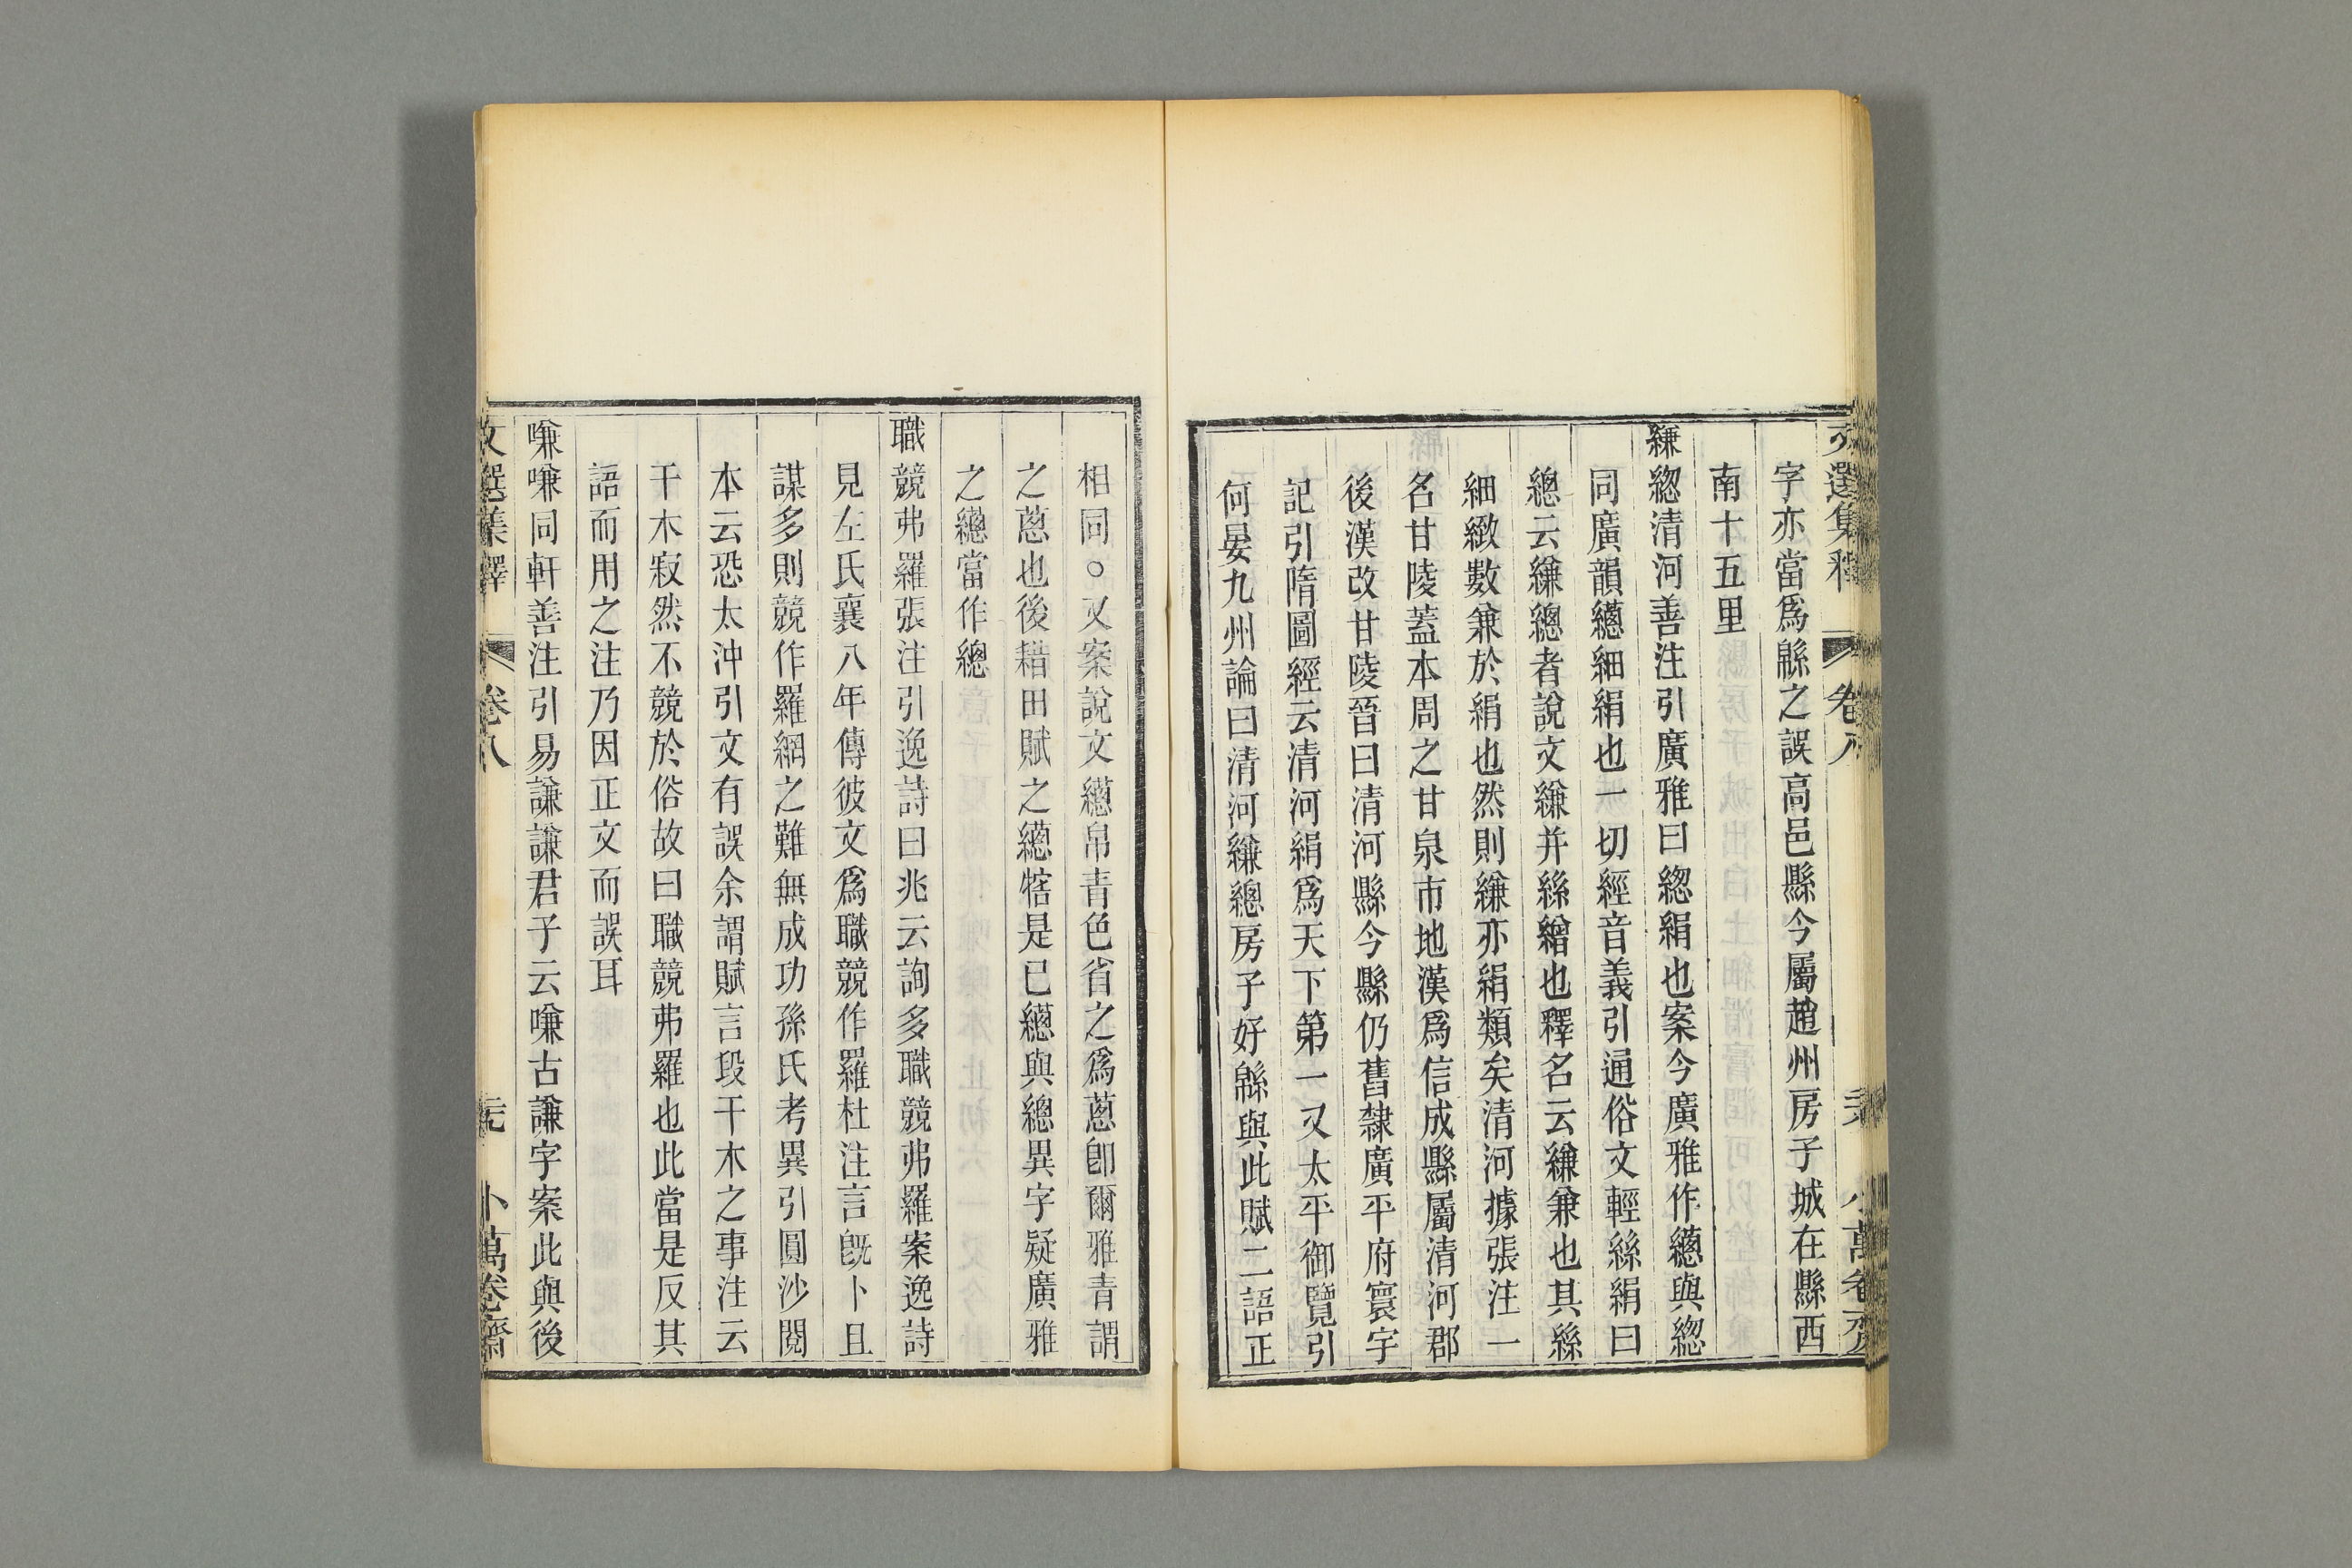 文選集釋 卷八 小萬卷齋
字亦當爲緜之誤高邑縣今屬趙州房子城在縣西
南十五里
縑緫清河善注引廣雅曰緫絹也案今廣雅作繱與緫
同廣韻繱細絹也一切經音義引通俗文輕絲絹曰
總云縑總者說文縑并絲繒也釋名云縑兼也其絲
細緻數兼於絹也然則縑亦絹類矣清河據張注一
名甘陵蓋本周之甘泉市地漢爲信成縣屬清河郡
後漢改甘陵晉曰清河縣今縣仍舊隸廣平府寰宇
記引隋圖經云清河絹爲天下第一又太平御覽引
何晏九州論曰清河縑總房子好緜與此賦二語正
相同○又案說文繱帛青色省之爲蔥卽爾雅青謂
之蔥也後耤田賦之繱犗是已繱與總異字疑廣雅
之繱當作總
職競弗羅張注引逸詩曰兆云詢多職競弗羅案逸詩
見左氏襄八年傳彼文爲職競作羅杜注言旣卜且
謀多則競作羅網之難無成功孫氏考異引圓沙閱
本云恐太沖引文有誤余謂賦言段干木之事注云
干木寂然不競於俗故曰職競弗羅也此當是反其
語而用之注乃因正文而誤耳
嗛嗛同軒善注引易謙謙君子云嗛古謙字案此與後
文選集釋 卷八 小萬卷齋